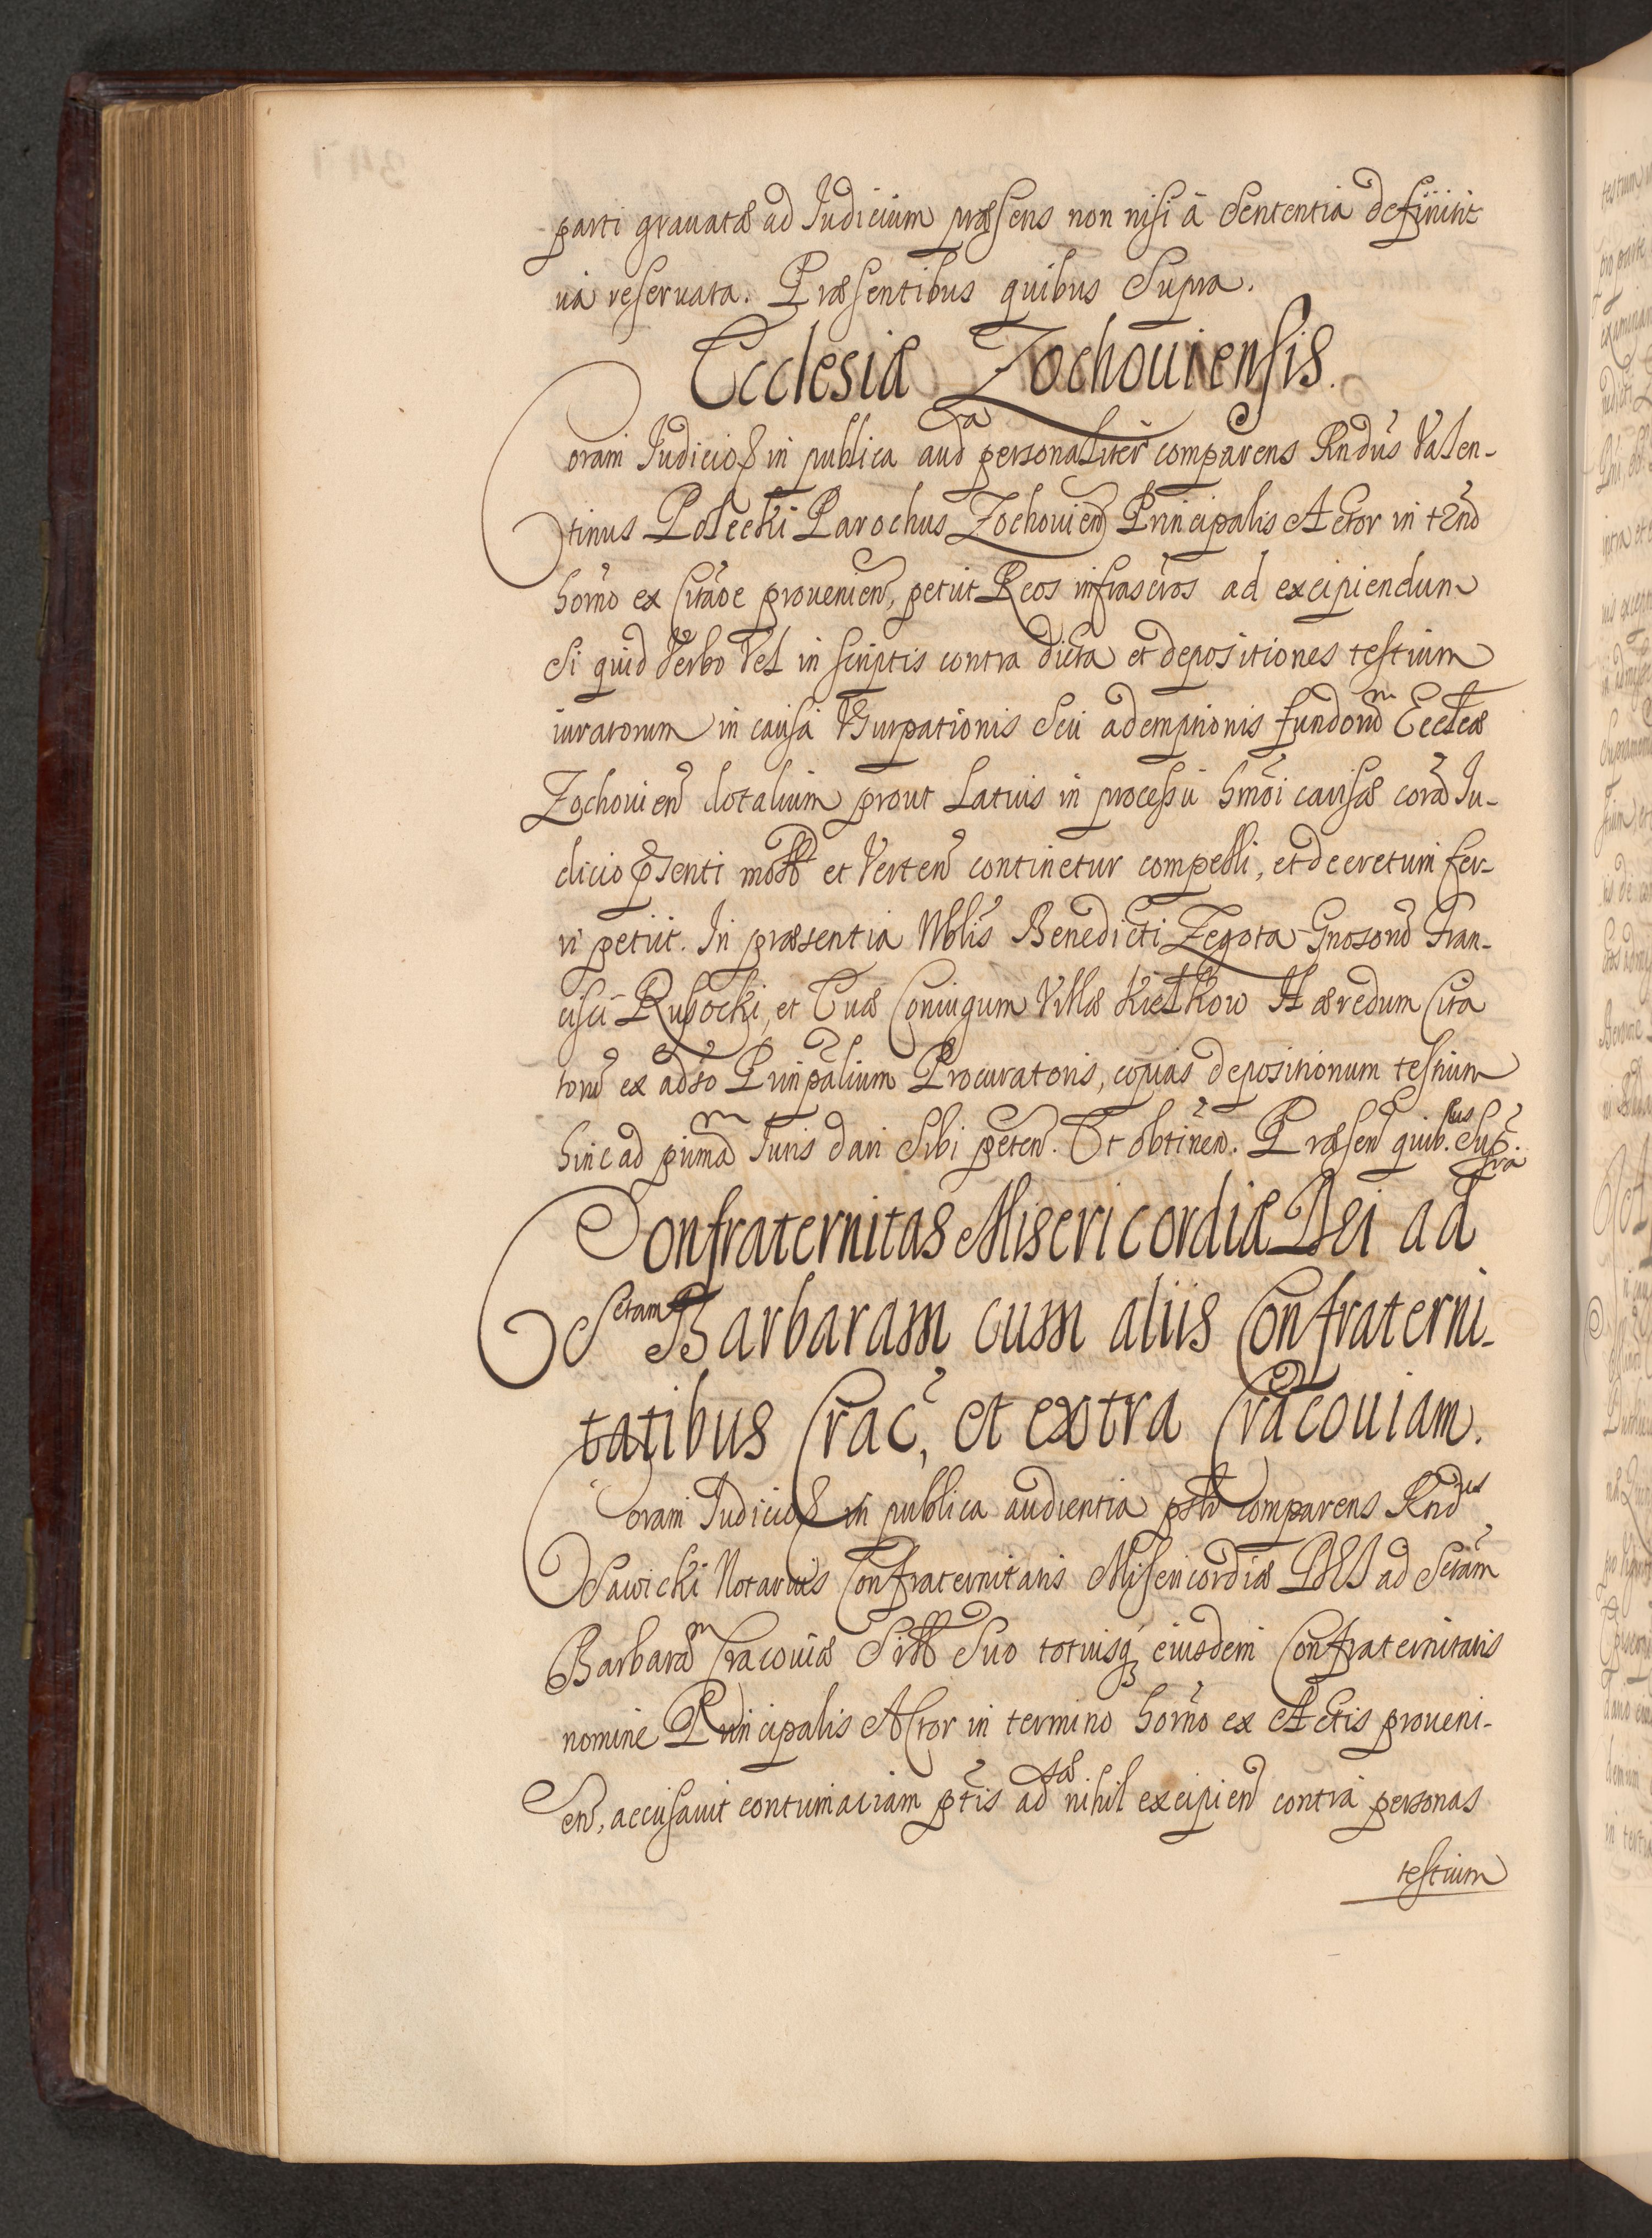 parti grauatæ ad Iudicium præsens non nisi à Sententia definiti-
uà reseruata. Præsentibus quibus Supra.
Ecclesiæ Zochouiensis.
Coram Iudicioq́ in publica aud^ra personaliter comparens Rndus Valen-
tinus Polecki Parochus Zochouien Principalis Actor in tmno
horno ex Citaõe prouenien, petijt Reos infrascros ad excipiendum
Si quid Verbo Vel in scriptis contra dicta et depositiones testium
iuratorum in causa Vsurpationis Seu ademptionis fundorum Ecclcæ
Zochouien dotalium prout Latius in processu hmoi causæ corã Iu-
dicio pñsenti mott et Verten continetur compelli, et decretum fer-
ri petijt. In præsentia Nblis Benedicti Zegota Gnosorum Fran-
cisci Rubocki, et Euæ Coniugum Villæ Kiełkow Hæredum Cita
torum ex adso Prinpalium Procuratoris, copias depositionum testium
hinc ad primam Iuris dari Sibi peten. Et obtinen. Præsen quib.^bus Sup^ra.
Confraternitas Misericordiæ Dei ad
S^ctam Barbaram cum aliis Confraterni-
tatibus Crac, et extra Cracouiam.
Coram Iudicioq́ in publica audientia psltr comparens Rnd^us
Sawicki Notarius Confraternitatis Misericordiæ DEI ad Sctam
Barbaram Cracouiæ Sitt Suo totiusq ejusdem Confraternitatis
nomine Principalis Actor in termino horno ex Actis proueni-
en, accusauit contumaciam ptis ad^sæ nihil excipien contra personas
testium